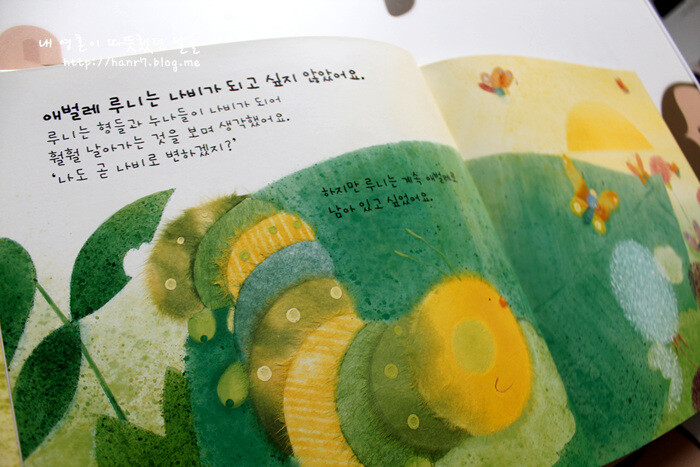 내 영혼이 따뜻했던 날들
http://hanr7.blog.me
애벌레 루니는 나비가 되고 싶지 않았어요.
루니는 형들과 누나들이 나비가 되어
훨훨 날아가는 것을 보며 생각했어요.
'나도 곧 나비로 변하겠지?'
하지만 루니는 계속 애벌레로
남아 있고 싶었어요.